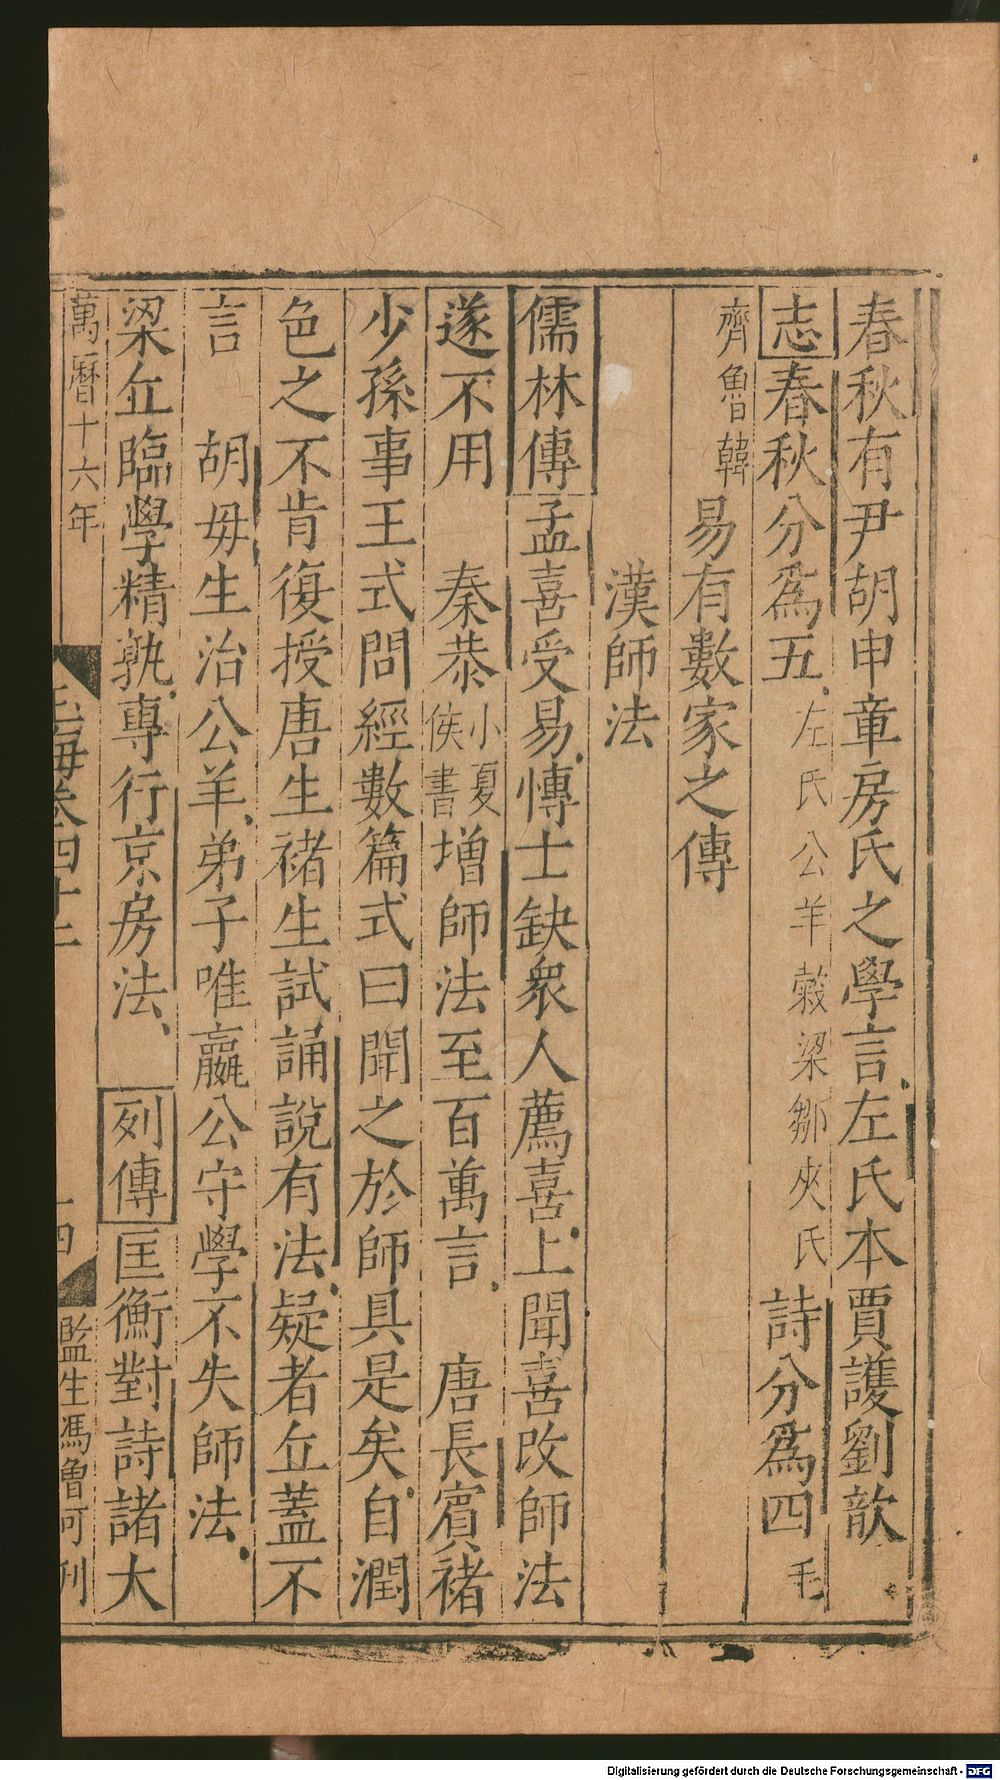 春秋有尹胡申章房氏之學言左氏本賈護劉歆
志春秋分爲五左氏公羊榖梁鄒夾氏詩分爲四毛
齊魯韓易有數家之傳
漢師法
儒林傳孟喜受易博士缺衆人薦喜上聞喜改師法
遂不用　秦恭小夏侯書增師法至百萬言　唐長賓褚
少孫事王式問經數篇式曰聞之於師具是矣自潤
色之不肯復授唐生褚生試誦說有法疑者丘蓋不
言　胡毋生治公羊弟子唯嬴公守學不失師法
梁丘臨學精孰專行京房法　列傳匡衡對詩諸大
萬曆十六年
玉海卷四十二
十四
監生馮魯可刊
Digitalisierung gefördert durch die Deutsche Forschungsgemeinschaft - DFG